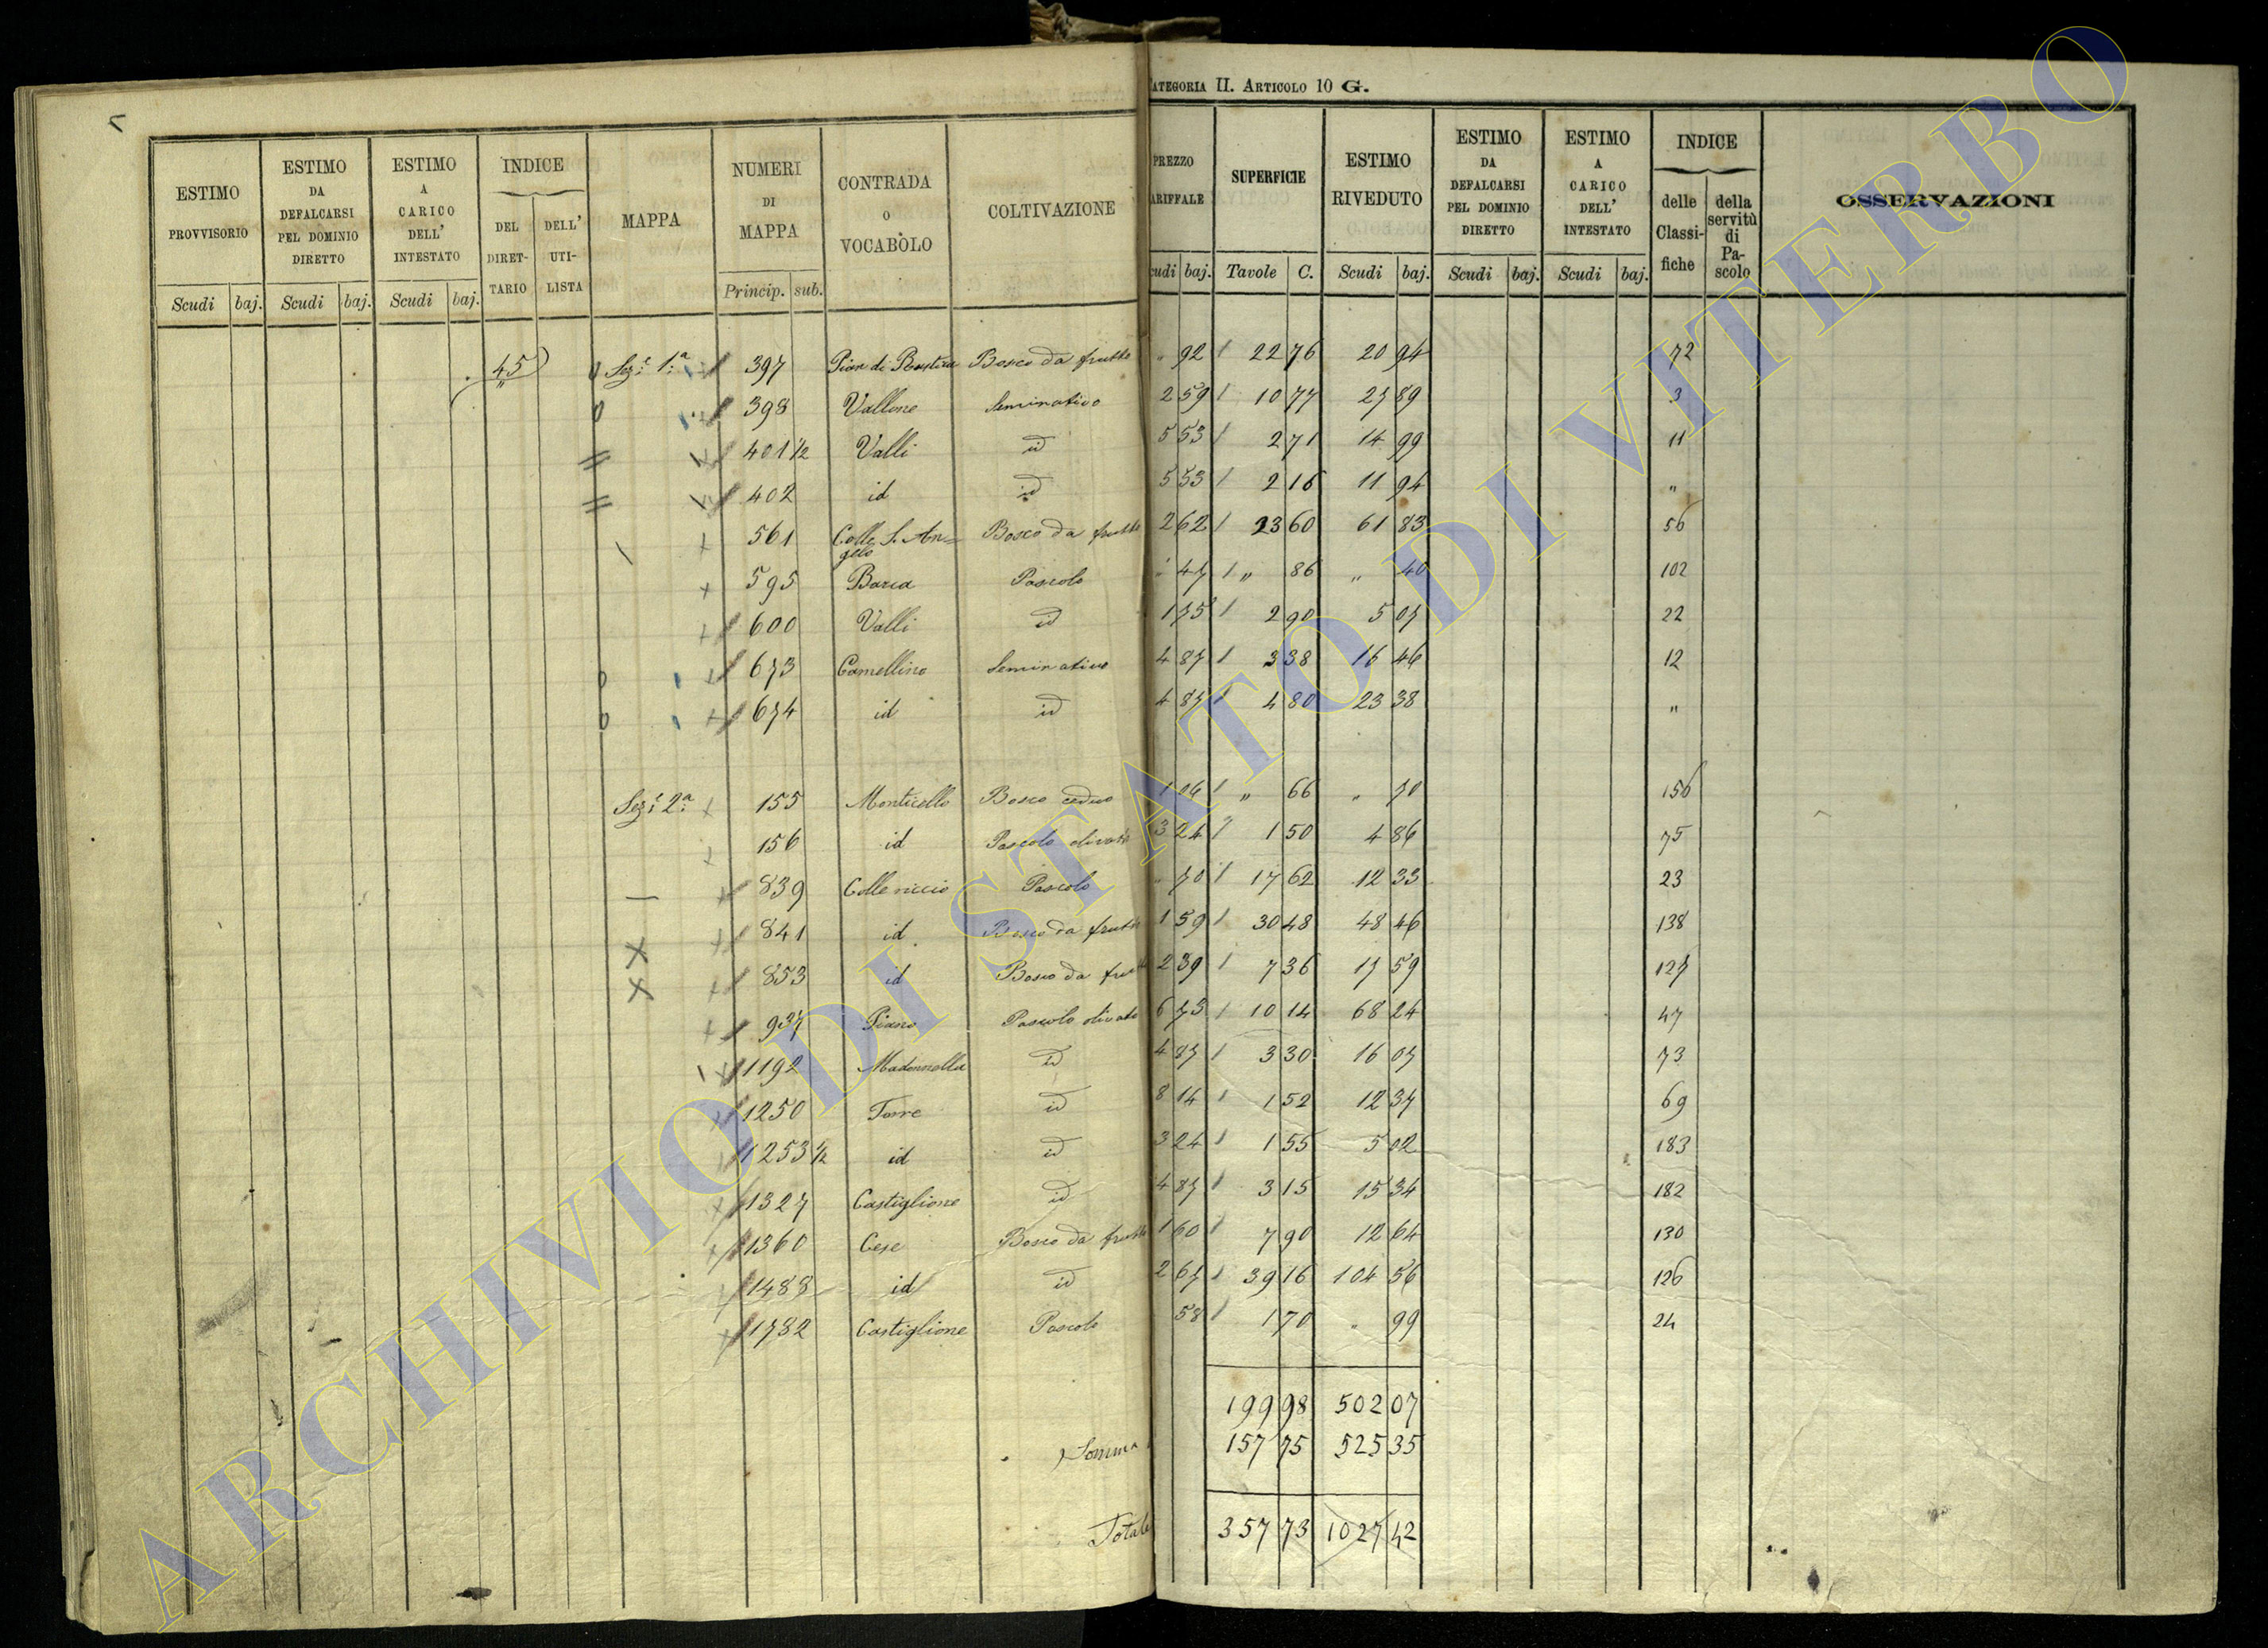 CATEGORIA II. ARTICOLO 10 G.
ESTIMO PROVVISORIO | ESTIMO DA DEFALCARSI PEL DOMINIO DIRETTO | ESTIMO A CARICO DELL' INTESTATO | INDICE | MAPPA | NUMERI DI MAPPA | CONTRADA O VOCABOLO | COLTIVAZIONE | PREZZO TARIFFALE | SUPERFICIE | ESTIMO RIVEDUTO | ESTIMO DA DEFALCARSI PEL DOMINIO DIRETTO | ESTIMO A CARICO DELL' INTESTATO | INDICE | OSSERVAZIONI
DEL DIRETTARIO | DELL' UTILISTA | delle Classifiche | della servitù di Pascolo
Scudi | baj. | Scudi | baj. | Scudi | baj. | Princip. | sub. | Scudi | baj. | Tavole | C. | Scudi | baj. | Scudi | baj. | Scudi | baj.
45 Sez.e 1.a 397 Pian di Bosco da frutto " 92 22 76 20 94 72
398 Vallone Seminativo 2 59 10 77 27 89 3
401 1/2 Valli id 5 53 2 71 14 99 11
402 id id 5 53 2 16 11 94 "
561 Colle S. Angelo Bosco da frutto 2 62 23 60 61 83 56
595 Barca Pascolo " 47 " 86 " 40 102
600 Valli id 1 75 2 90 5 07 22
673 Camellino Seminativo 4 87 3 38 16 46 12
674 id id 4 87 4 80 23 38 "
Sez.e 2.a 155 Monticello Bosco ceduo 1 06 " 66 " 70 156
156 id Pascolo olivato 3 24 1 50 4 86 75
839 Colle riccio Pascolo " 70 17 62 12 33 23
841 id Bosco da frutto 1 59 30 48 48 46 138
853 id Bosco da frutto 2 39 7 36 17 59 127
937 Piano Pascolo olivato 6 73 10 14 68 24 47
1192 Madonnella id 4 87 3 30 16 07 73
1250 Torre id 8 14 1 52 12 37 69
1253 1/2 id id 3 24 1 55 5 02 183
1327 Castiglione id 4 87 3 15 15 34 182
1360 Cese Bosco da frutto 1 60 7 90 12 64 130
1488 id id 2 67 39 16 104 56 126
1732 Castiglione Pascolo 58 1 70 " 99 24
199 98 502 07
Somma 157 75 525 35
Totale 357 73 1027 42
ARCHIVIO DI STATO DI VITERBO